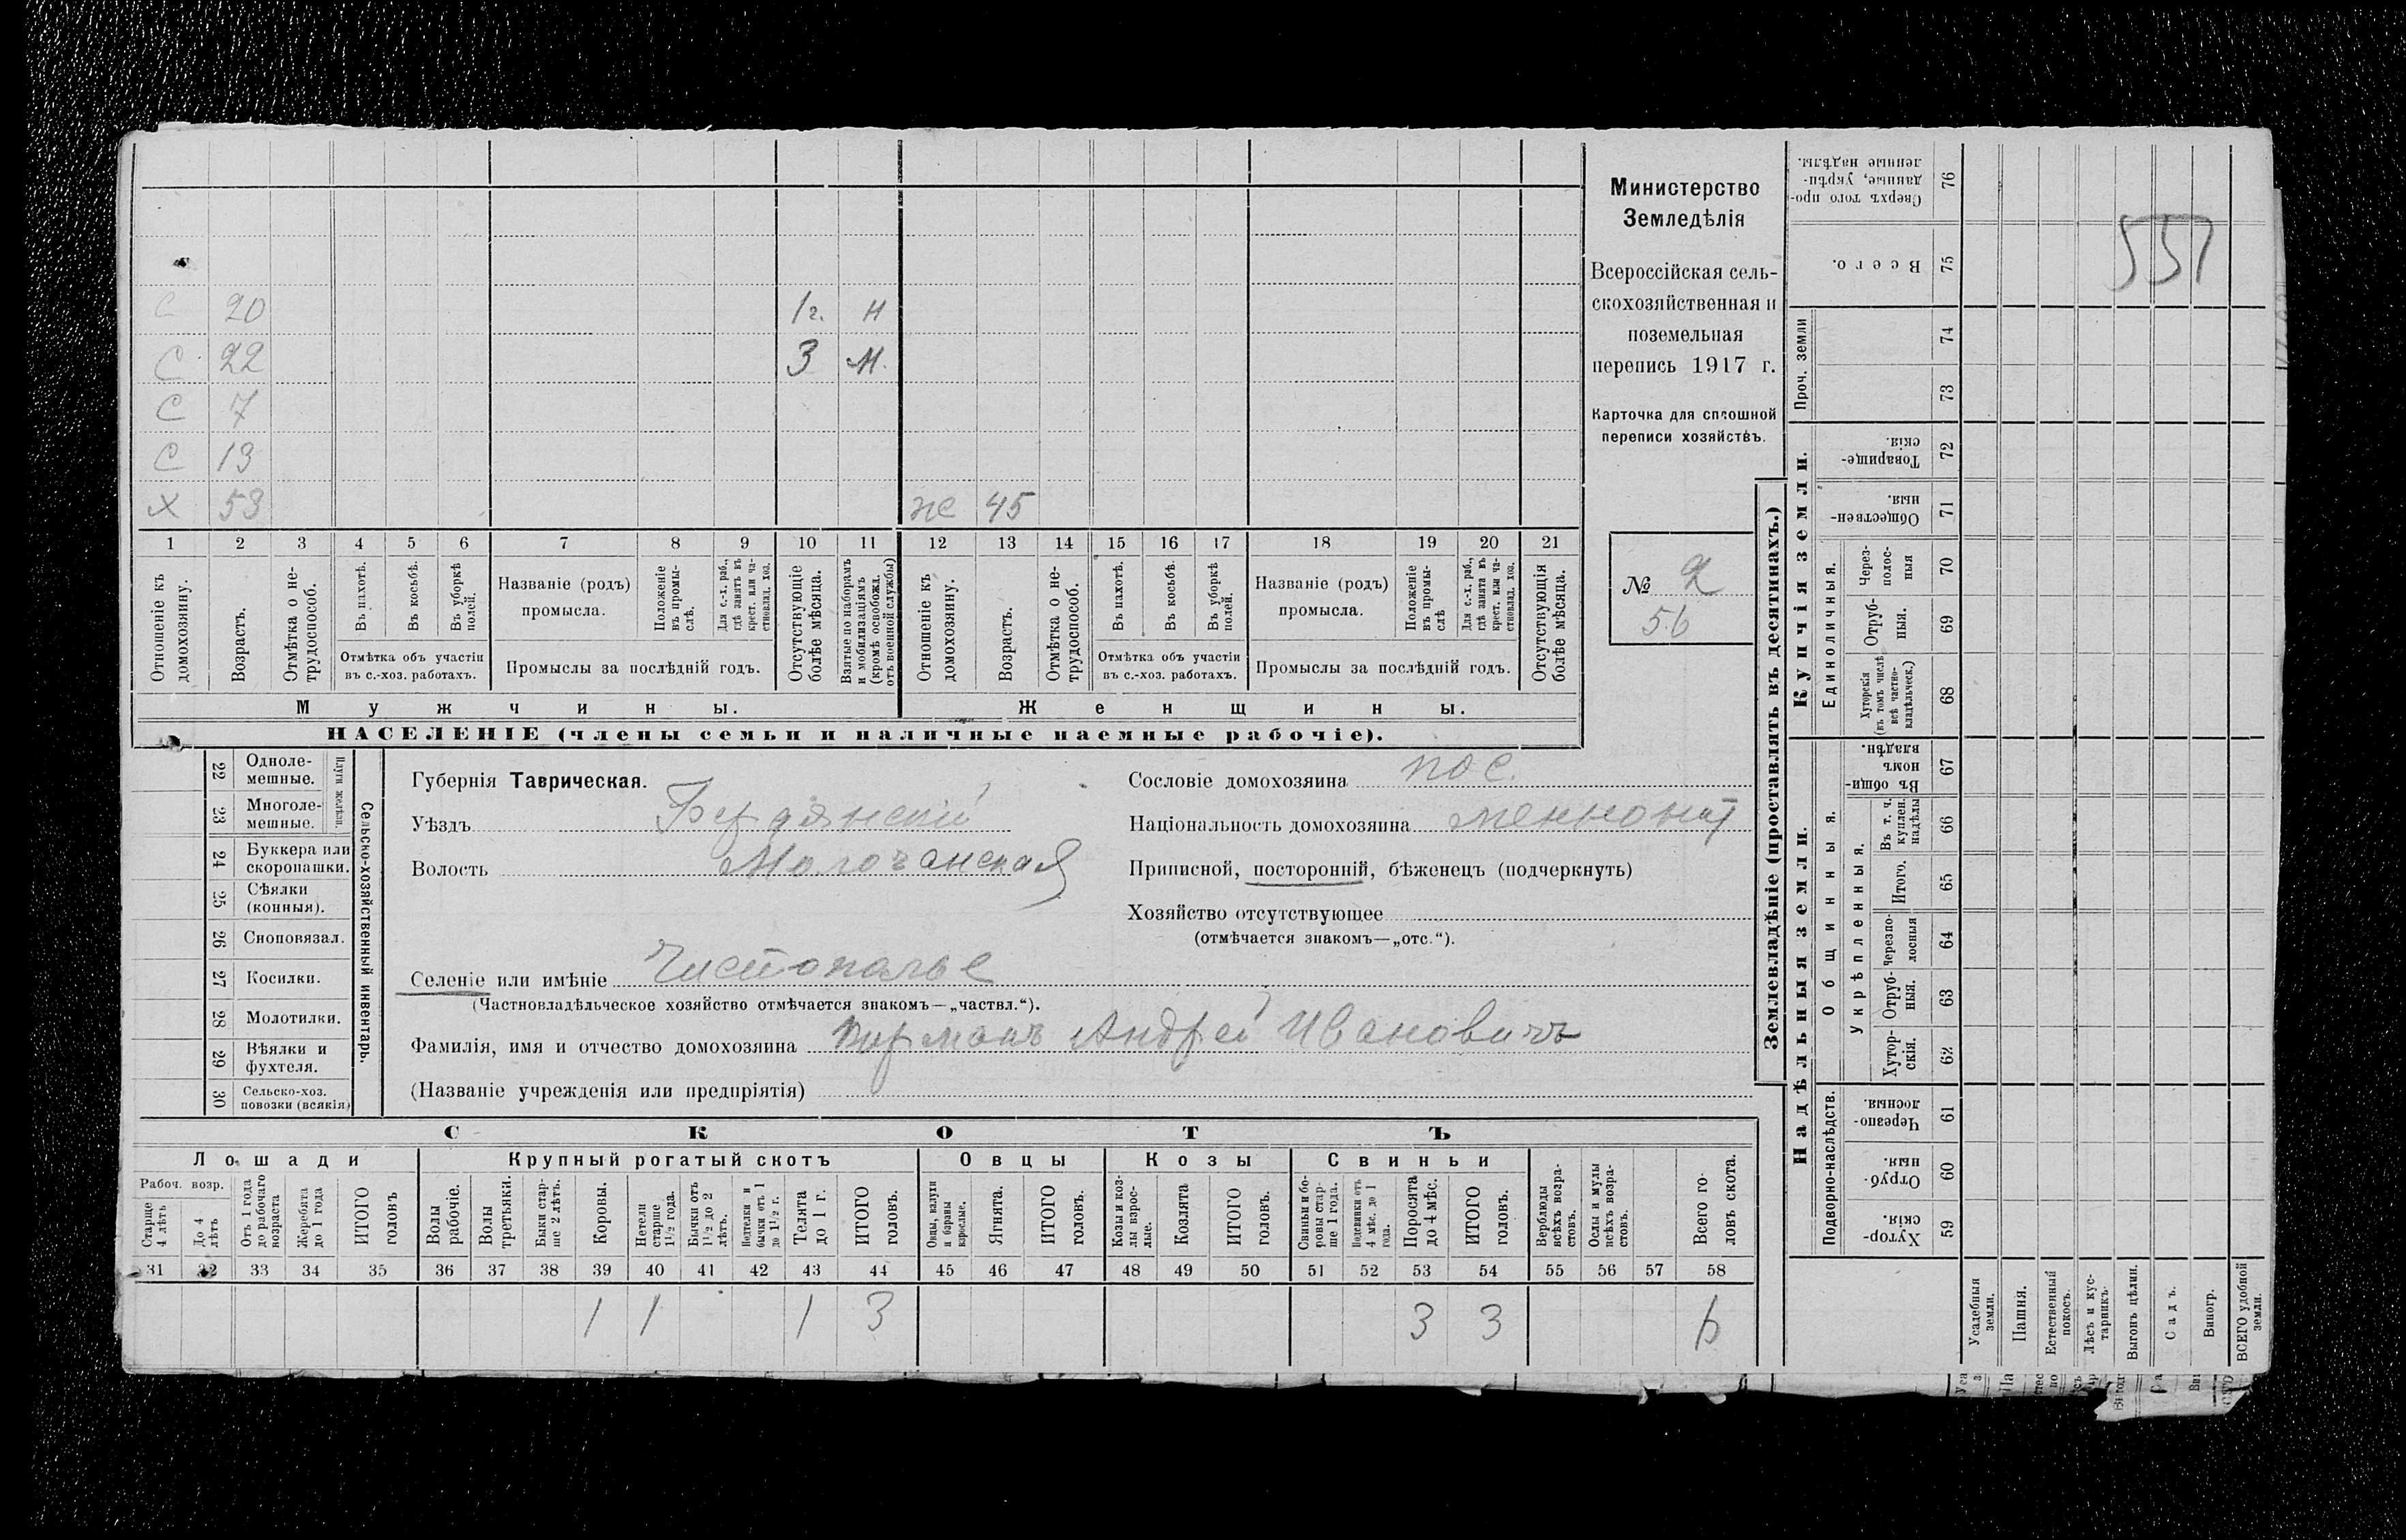 Министерство
Земледѣлія
Всероссійская сель-
скохозяйственная и
поземельная
перепись 1917 г.
Карточка для сплошной
переписи хозяйствъ.
№ 2
56
557
С 20 1г. н
С 22 3 м.
С 7
С 13
Х 53 же 45
1 2 3 4 5 6 7 8 9 10 11 12 13 14 15 16 17 18 19 20 21
Отношеніе къ домохозяину.
Возрастъ.
Отмѣтка о не-трудоспособ.
Въ пахотѣ.
Въ косьбѣ.
Въ уборкѣ полей.
Отмѣтка объ участіи
въ с.-хоз. работахъ.
Названіе (родъ)
промысла.
Положеніе въ промы-слѣ.
Для с.-х. раб., гдѣ занятъ въ крест. или ча-стновлад. хоз.
Промыслы за послѣдній годъ.
Отсутствующіе болѣе мѣсяца.
Взятые по наборамъ и мобилизаціямъ (кромѣ освобожд. отъ военной службы)
Отношеніе къ домохозяину.
Возрастъ.
Отмѣтка о не-трудоспособ.
Въ пахотѣ.
Въ косьбѣ.
Въ уборкѣ полей.
Отмѣтка объ участіи
въ с.-хоз. работахъ.
Названіе (родъ)
промысла.
Положеніе въ промы-слѣ
Для с.-х. раб., гдѣ занята въ крест. или ча-стновлад. хоз.
Промыслы за послѣдній годъ.
Отсутствующія болѣе мѣсяца.
Мужчины.
Женщины.
НАСЕЛЕНІЕ (члены семьи и наличные наемные рабочіе).
22 Одноле-мешные.
23 Многоле-мешные.
Плуги желѣзн.
24 Буккера или скоропашки.
25 Сѣялки (конныя).
26 Сноповязал.
27 Косилки.
28 Молотилки.
29 Вѣялки и фухтеля.
30 Сельско-хоз. повозки (всякія)
Сельско-хозяйственный инвентарь.
Губернія Таврическая.
Уѣздъ Бердянскій
Волость Молочанская
Селеніе или имѣніе Чистополье
(Частновладѣльческое хозяйство отмѣчается знакомъ—„частвл.“).
Фамилія, имя и отчество домохозяина Андрей Ивановичъ
(Названіе учрежденія или предпріятія)
Сословіе домохозяина пос.
Національность домохозяина меннонит
Приписной, посторонній, бѣженецъ (подчеркнуть)
Хозяйство отсутствующее
(отмѣчается знакомъ—„отс.“).
СКОТЪ
Лошади
Крупный рогатый скотъ
Овцы
Козы
Свиньи
Рабоч. возр.
Старше 4 лѣтъ
До 4 лѣтъ
Отъ 1 года до рабочаго возраста
Жеребята до 1 года
ИТОГО головъ
Волы рабочіе.
Волы третьяки.
Быки стар-ше 2 лѣтъ.
Коровы.
Нетели старше 1½ года.
Бычки отъ 1½ до 2 лѣтъ.
Нетелки и бычки отъ 1 до 1½ г.
Телята до 1 г.
ИТОГО головъ.
Овцы, валухи и бараны взрослые.
Ягнята.
ИТОГО головъ.
Козы и коз-лы взрос-лые.
Козлята
ИТОГО головъ.
Свиньи и бо-ровы стар-ше 1 года.
Подсвинки отъ 4 мѣс. до 1 года.
Поросята до 4 мѣс.
ИТОГО головъ.
Верблюды всѣхъ возра-стовъ.
Ослы и мулы всѣхъ возра-стовъ.
Всего го-ловъ скота.
31 32 33 34 35 36 37 38 39 40 41 42 43 44 45 46 47 48 49 50 51 52 53 54 55 56 57 58
1 1 1 3 3 3 6
Землевладѣніе (проставлять въ десятинахъ.)
Надѣльныя земли.
Купчія земли.
Проч. земли
Подворно-наслѣдств.
Общинныя.
Укрѣпленныя.
Единоличныя.
Хутор-скія. 59
Отруб-ныя. 60
Черезпо-лосныя. 61
Хутор-скія. 62
Отруб-ныя. 63
Черезпо-лосныя 64
Итого. 65
Въ т. ч. куплен. надѣлы 66
Въ общин-номъ владѣн. 67
Хуторскія (въ томъ числѣ всѣ частно-владѣльческ.) 68
Отруб-ныя. 69
Через-полос-ныя 70
Обществен-ныя. 71
Товарище-скія. 72
73
74
Всего. 75
Сверхъ того про-данные, укрѣп-ленные надѣлы. 76
Усадебныя земли.
Пашня.
Естественный покосъ.
Лѣсъ и кус-тарникъ.
Выгонъ цѣлин.
Садъ.
Виногр.
ВСЕГО удобной земли.